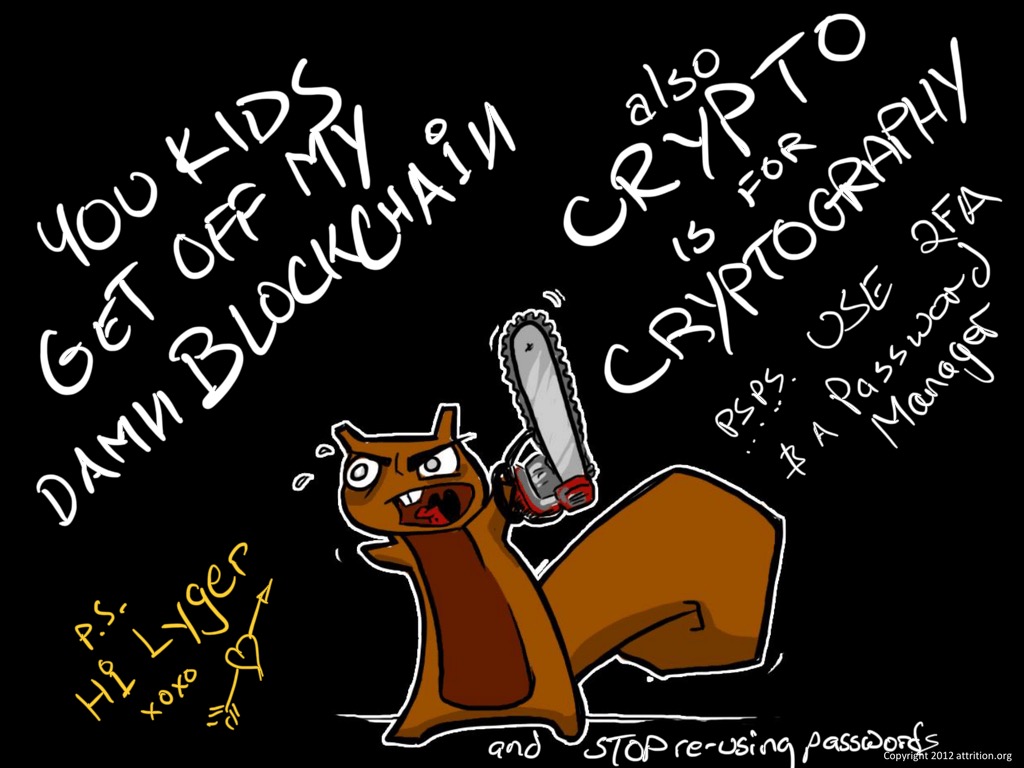 YOU KIDS
GET OFF MY
DAMN BLOCKCHAIN
also
CRYPTO
is FOR
CRYPTOGRAPHY
P.S.P.S. USE 2FA
& A Password
Manager
P.S.
Hi Lyger
xoxo
and STOP re-using passwords
Copyright 2012 attrition.org